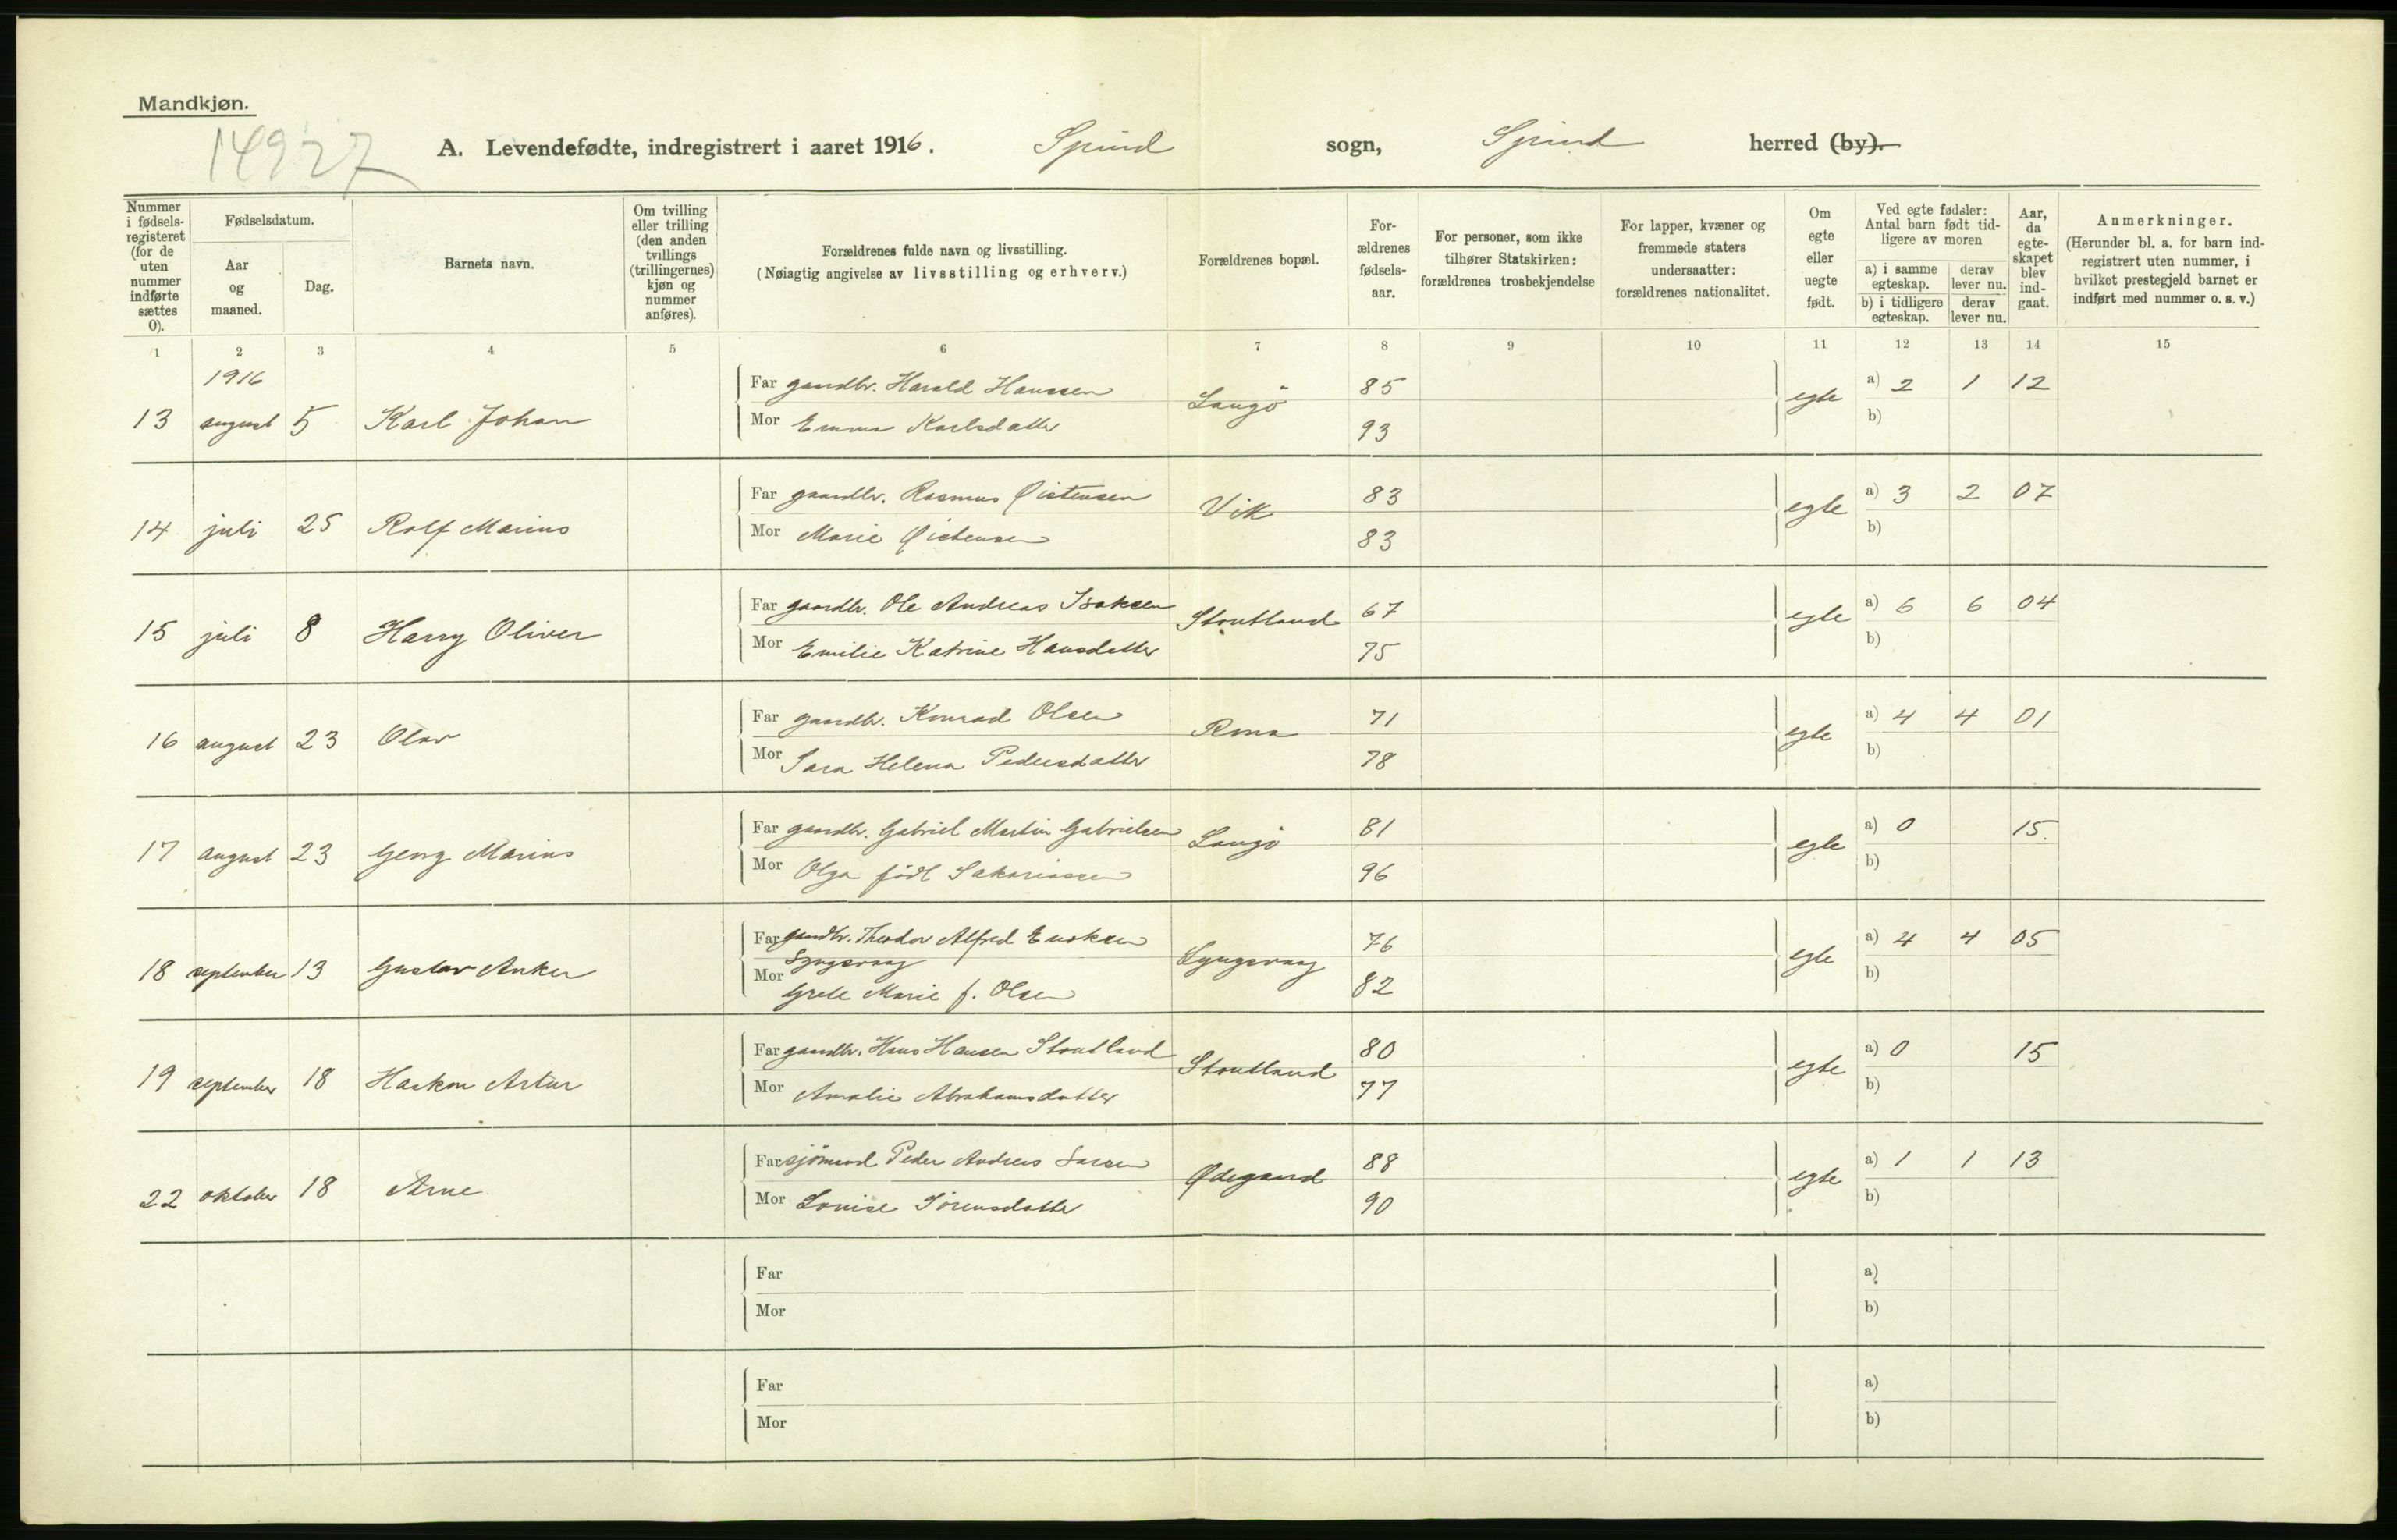 Mandkjøn.
14927
A. Levendefødte, indregistrert i aaret 1916. Spind sogn, Spind herred (by).
Nummer i fødsels-registeret (for de uten nummer indførte sættes 0). Fødselsdatum. Aar og maaned. Dag. Barnets navn. Om tvilling eller trilling (den anden tvillings (trillingernes) kjøn og nummer anføres). Forældrenes fulde navn og livsstilling. (Nøiagtig angivelse av livsstilling og erhverv.) Forældrenes bopæl. For-ældrenes fødsels-aar. For personer, som ikke tilhører Statskirken: forældrenes trosbekjendelse For lapper, kvæner og fremmede staters undersaatter: forældrenes nationalitet. Om egte eller uegte født. Ved egte fødsler: Antal barn født tid-ligere av moren a) i samme egteskap. derav lever nu. b) i tidligere egteskap. derav lever nu. Aar, da egte-skapet blev ind-gaat. Anmerkninger. (Herunder bl. a. for barn ind-registrert uten nummer, i hvilket prestegjeld barnet er indført med nummer o. s. v.)
1 2 3 4 5 6 7 8 9 10 11 12 13 14 15
1916
Far gaardbr. Harald Hanssen 85 a) 2 1 12
13 august 5 Karl Johan Langö egte
Mor Emma Karlsdatter 93 b)
Far gaardbr. Rasmus Øistensen 83 a) 3 2 07
14 juli 25 Rolf Marius Vik egte
Mor Marie Øistensen 83 b)
Far gaardbr. Ole Andreas Isaksen 67 a) 6 6 04
15 juli 8 Harry Oliver Stoutland egte
Mor Emilie Katrine Hansdatter 75 b)
Far gaardbr. Konrad Olsen 71 a) 4 4 01
16 august 23 Olav Rona egte
Mor Sara Helena Pedersdatter 78 b)
Far gaardbr. Gabriel Martin Gabrielsen 81 a) 0 15.
17 august 23 Georg Marius Langö egte
Mor Olga född Sakariassen 96 b)
Far gaardbr. Theodor Alfred Enoksen 76 a) 4 4 05
Lyngsvaag
18 september 13 Gustav Anker Lyngsvaag egte
Mor Grete Marie f. Olsen 82 b)
Far gaardbr. Hans Hansen Stoutland 80 a) 0 15
19 september 18 Haakon Artur Stoutland egte
Mor Amalie Abrahamsdatter 77 b)
Far sjömand Peder Andreas Larsen 88 a) 1 1 13
22 oktober 18 Arne Ødegaard egte
Mor Lovise Sörensdatter 90 b)
Far a)
Mor b)
Far a)
Mor b)